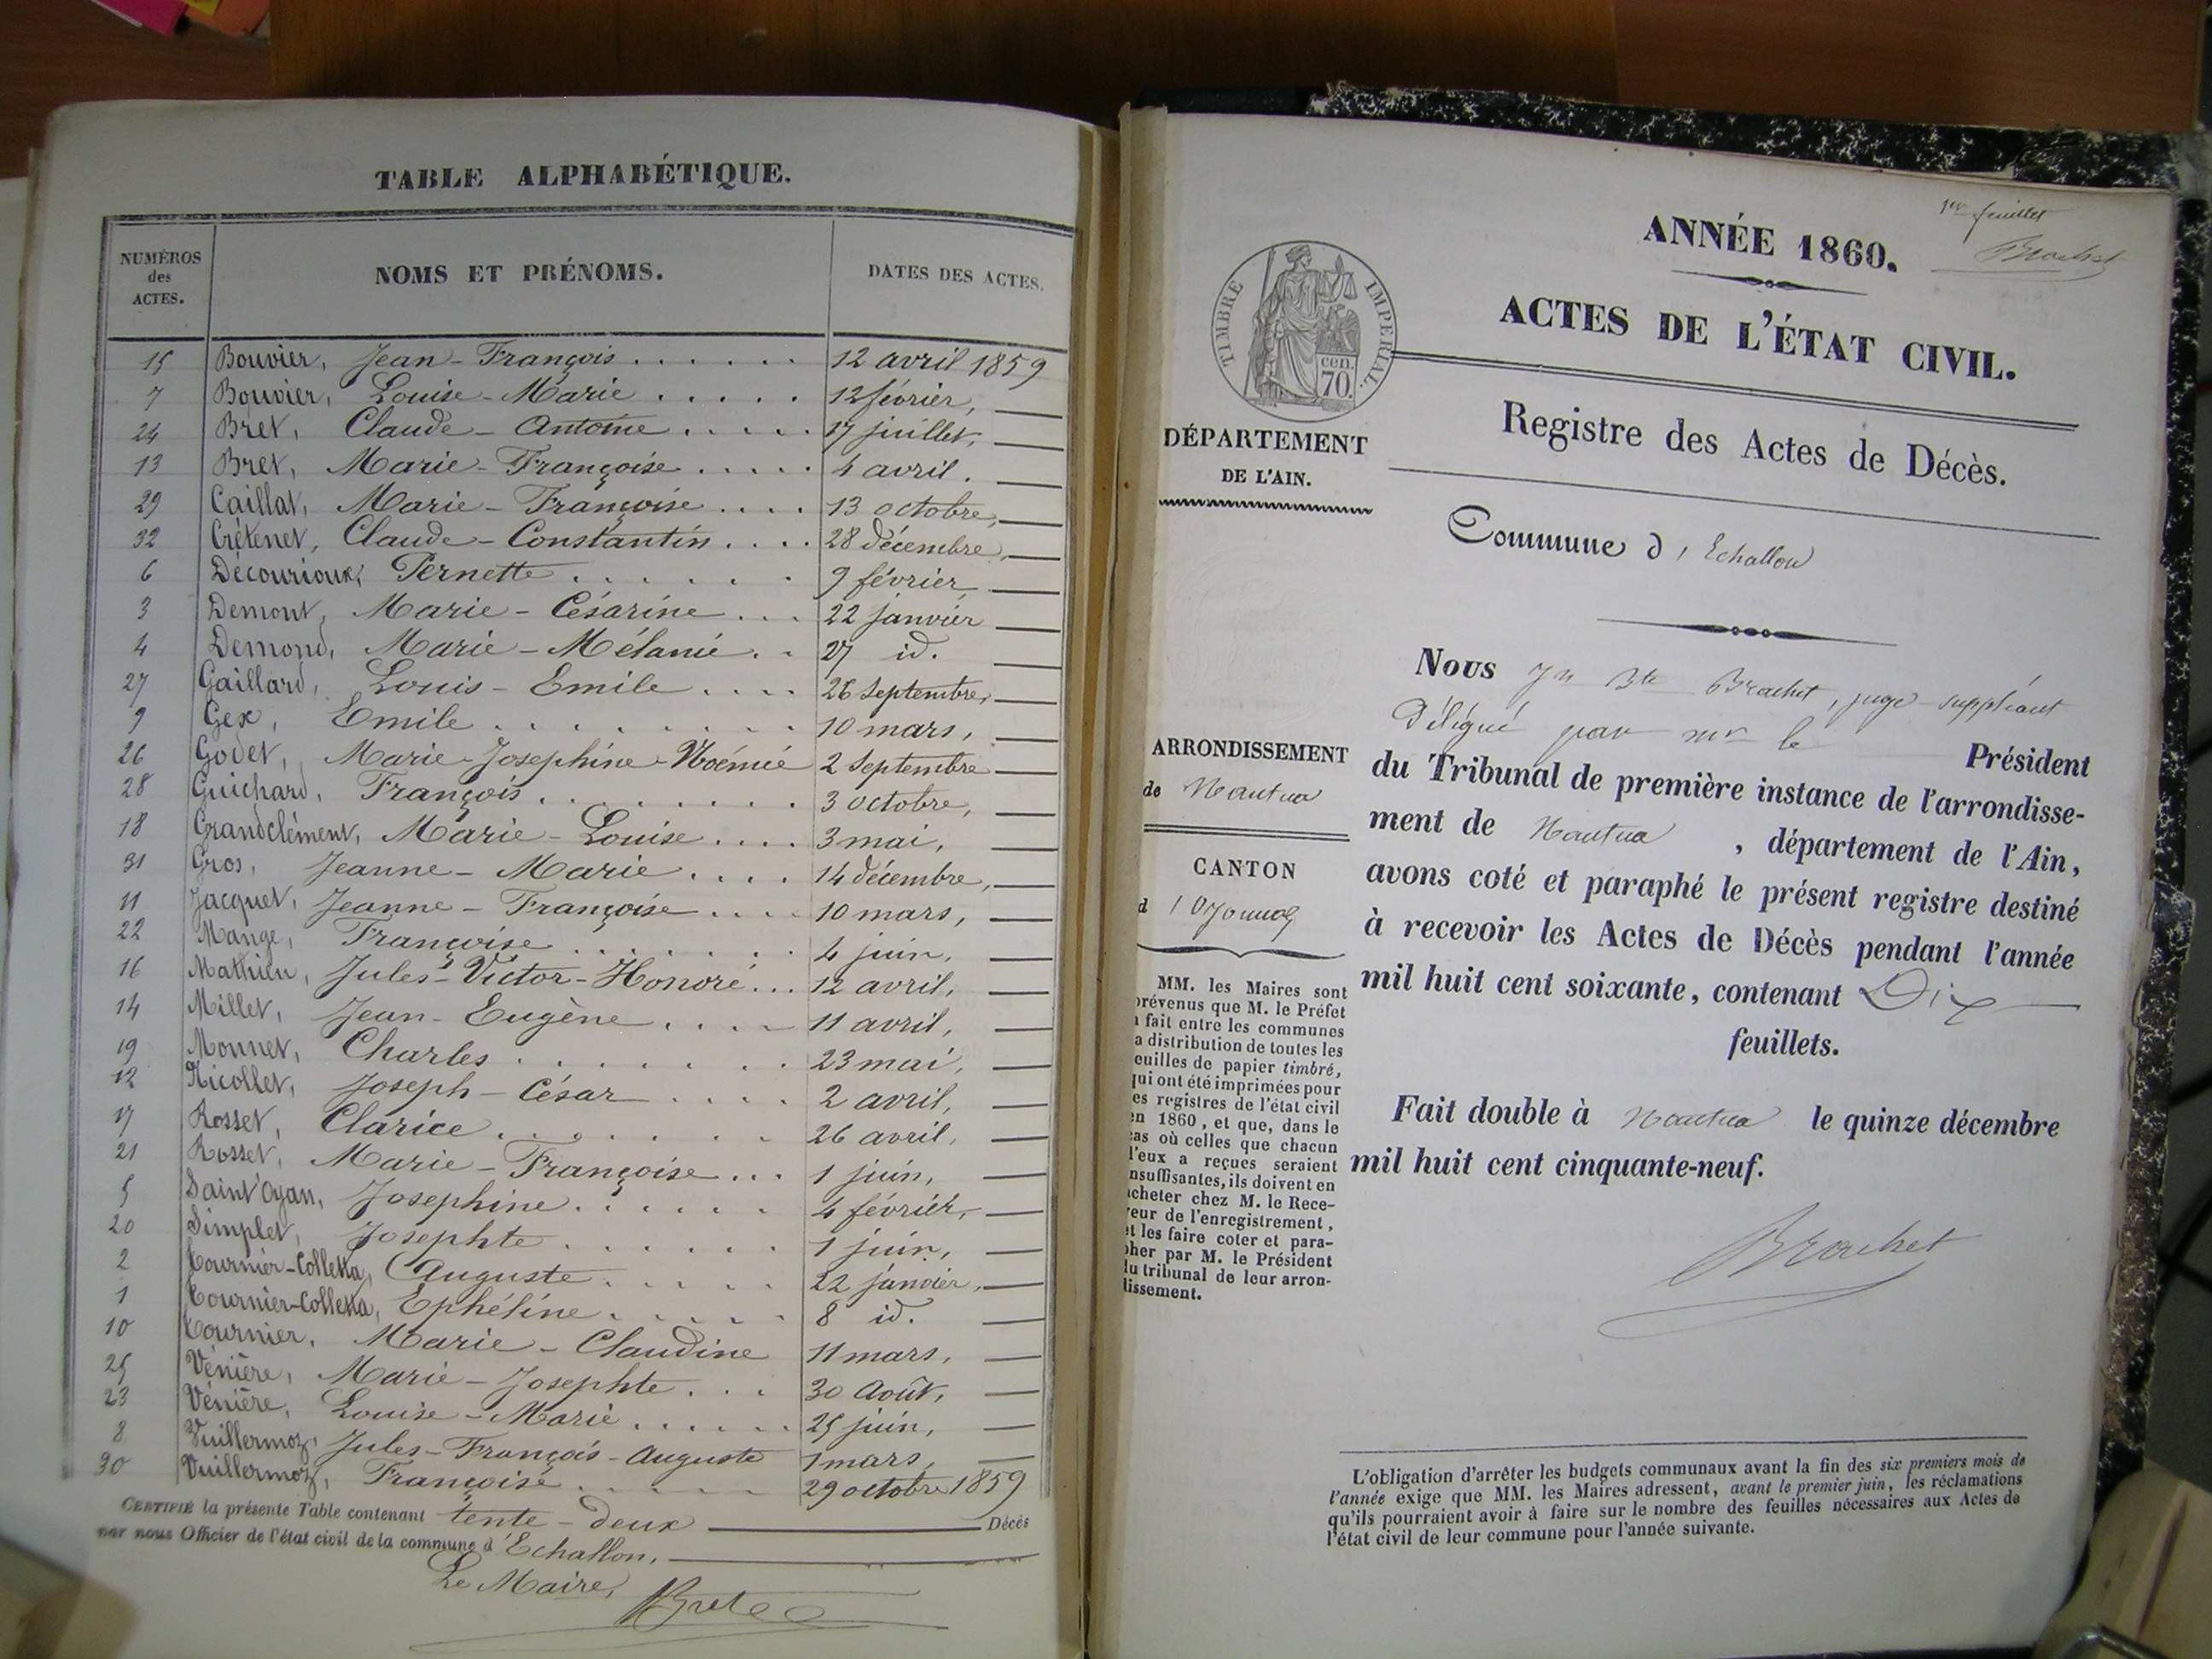 TABLE ALPHABÉTIQUE.
NUMÉROS des ACTES. NOMS ET PRÉNOMS. DATES DES ACTES.
15 Bouvier, Jean-François . . . . . . 12 avril 1859
7 Bouvier, Louise-Marie . . . . . 12 février, —
24 Bret, Claude-Antoine . . . . . 17 juillet, —
13 Bret, Marie-Françoise . . . . . 4 avril. —
29 Caillat, Marie-Françoise . . . . 13 octobre, —
32 Crétenet, Claude-Constantin . . . . 28 décembre, —
6 Decourioux, Pernette . . . . . . 9 février —
3 Demont, Marie-Césarine . . . 22 janvier —
4 Demond, Marie-Mélanie . . 27 id. —
27 Gaillard, Louis-Emile . . . . 26 septembre, —
9 Gex, Emile . . . . . . . . . 10 mars, —
26 Godet, Marie-Josephine-Noémie 2 Septembre —
28 Guichard, François . . . . . . . . 3 octobre, —
18 Grandclément, Marie-Louise . . . . 3 mai, —
31 Gros, Jeanne-Marie . . . . 14 décembre, —
11 Jacquet, Jeanne-Françoise . . . . 10 mars, —
22 Mange, Françoise . . . . . . . 4 juin, —
16 Mathieu, Jules-Victor-Honoré . . . 12 avril, —
14 Millet, Jean-Eugène . . . . 11 avril, —
19 Monnet, Charles . . . . . . . 23 mai, —
12 Nicollet, Joseph-César . . . . 2 avril, —
17 Rosset, Clarice . . . . . . . 26 avril, —
21 Rosset, Marie-Françoise . . . 1 juin, —
5 Saint Oyan, Josephine . . . . . . 4 février, —
20 Simplet, Josephte . . . . . . 1 juin, —
2 Tournier-Colletta, Auguste . . . . . 22 janvier, —
1 Tournier-Colletta, Ephéline . . . . . 8 id. —
10 Tournier, Marie-Claudine 11 mars, —
25 Vénière, Marie-Josephte . . . 30 Août, —
23 Vénière, Louise-Marie . . . . . 25 juin, —
8 Vuillermoz, Jules-François-Auguste 1 mars, —
30 Vuillermoz, Françoise . . . . . 29 octobre 1859
CERTIFIÉ la présente Table contenant tente-deux — Décès
par nous Officier de l'état civil de la commune d'Echallon, —
Le Maire,
1er feuillet
Brachet
ANNÉE 1860.
ACTES DE L'ÉTAT CIVIL.
TIMBRE IMPÉRIAL.
cen. 70.
Registre des Actes de Décès.
DÉPARTEMENT
DE L'AIN.
Commune d'Echallon
Nous Jn Bte Brachet, juge suppléant
délégué par mr le Président
du Tribunal de première instance de l'arrondisse-
ment de Nantua, département de l'Ain,
avons coté et paraphé le présent registre destiné
à recevoir les Actes de Décès pendant l'année
mil huit cent soixante, contenant Dix —
feuillets.
Fait double à Nantua le quinze décembre
mil huit cent cinquante-neuf.
Brachet
ARRONDISSEMENT
de Nantua
CANTON
d'Oyonnax
MM. les Maires sont
prévenus que M. le Préfet
a fait entre les communes
a distribution de toutes les
euilles de papier timbré,
qui ont été imprimées pour
es registres de l'état civil
en 1860, et que, dans le
cas où celles que chacun
d'eux a reçues seraient
nsuffisantes, ils doivent en
acheter chez M. le Rece-
veur de l'enregistrement,
et les faire coter et para-
pher par M. le Président
du tribunal de leur arron-
dissement.
L'obligation d'arrêter les budgets communaux avant la fin des six premiers mois de
l'année exige que MM. les Maires adressent, avant le premier juin, les réclamations
qu'ils pourraient avoir à faire sur le nombre des feuilles nécessaires aux Actes de
l'état civil de leur commune pour l'année suivante.